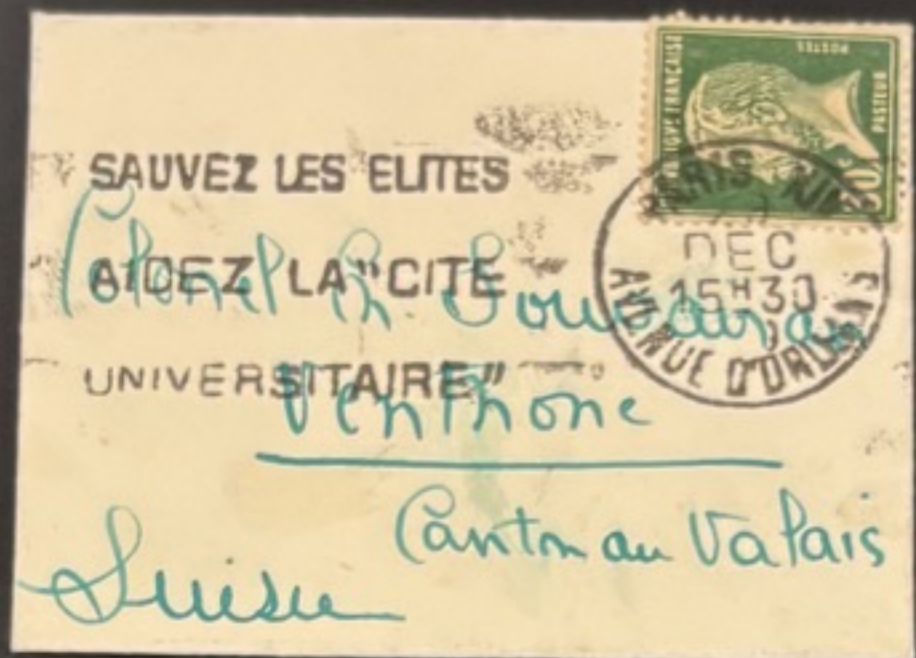 SAUVEZ LES ELITES
AIDEZ LA "CITE
UNIVERSITAIRE"
REPUBLIQUE FRANÇAISE
POSTES
PASTEUR
PARIS
DEC
15H30
AVENUE D'ORLEANS
Colonel
Venthone
Canton du Valais
Suisse